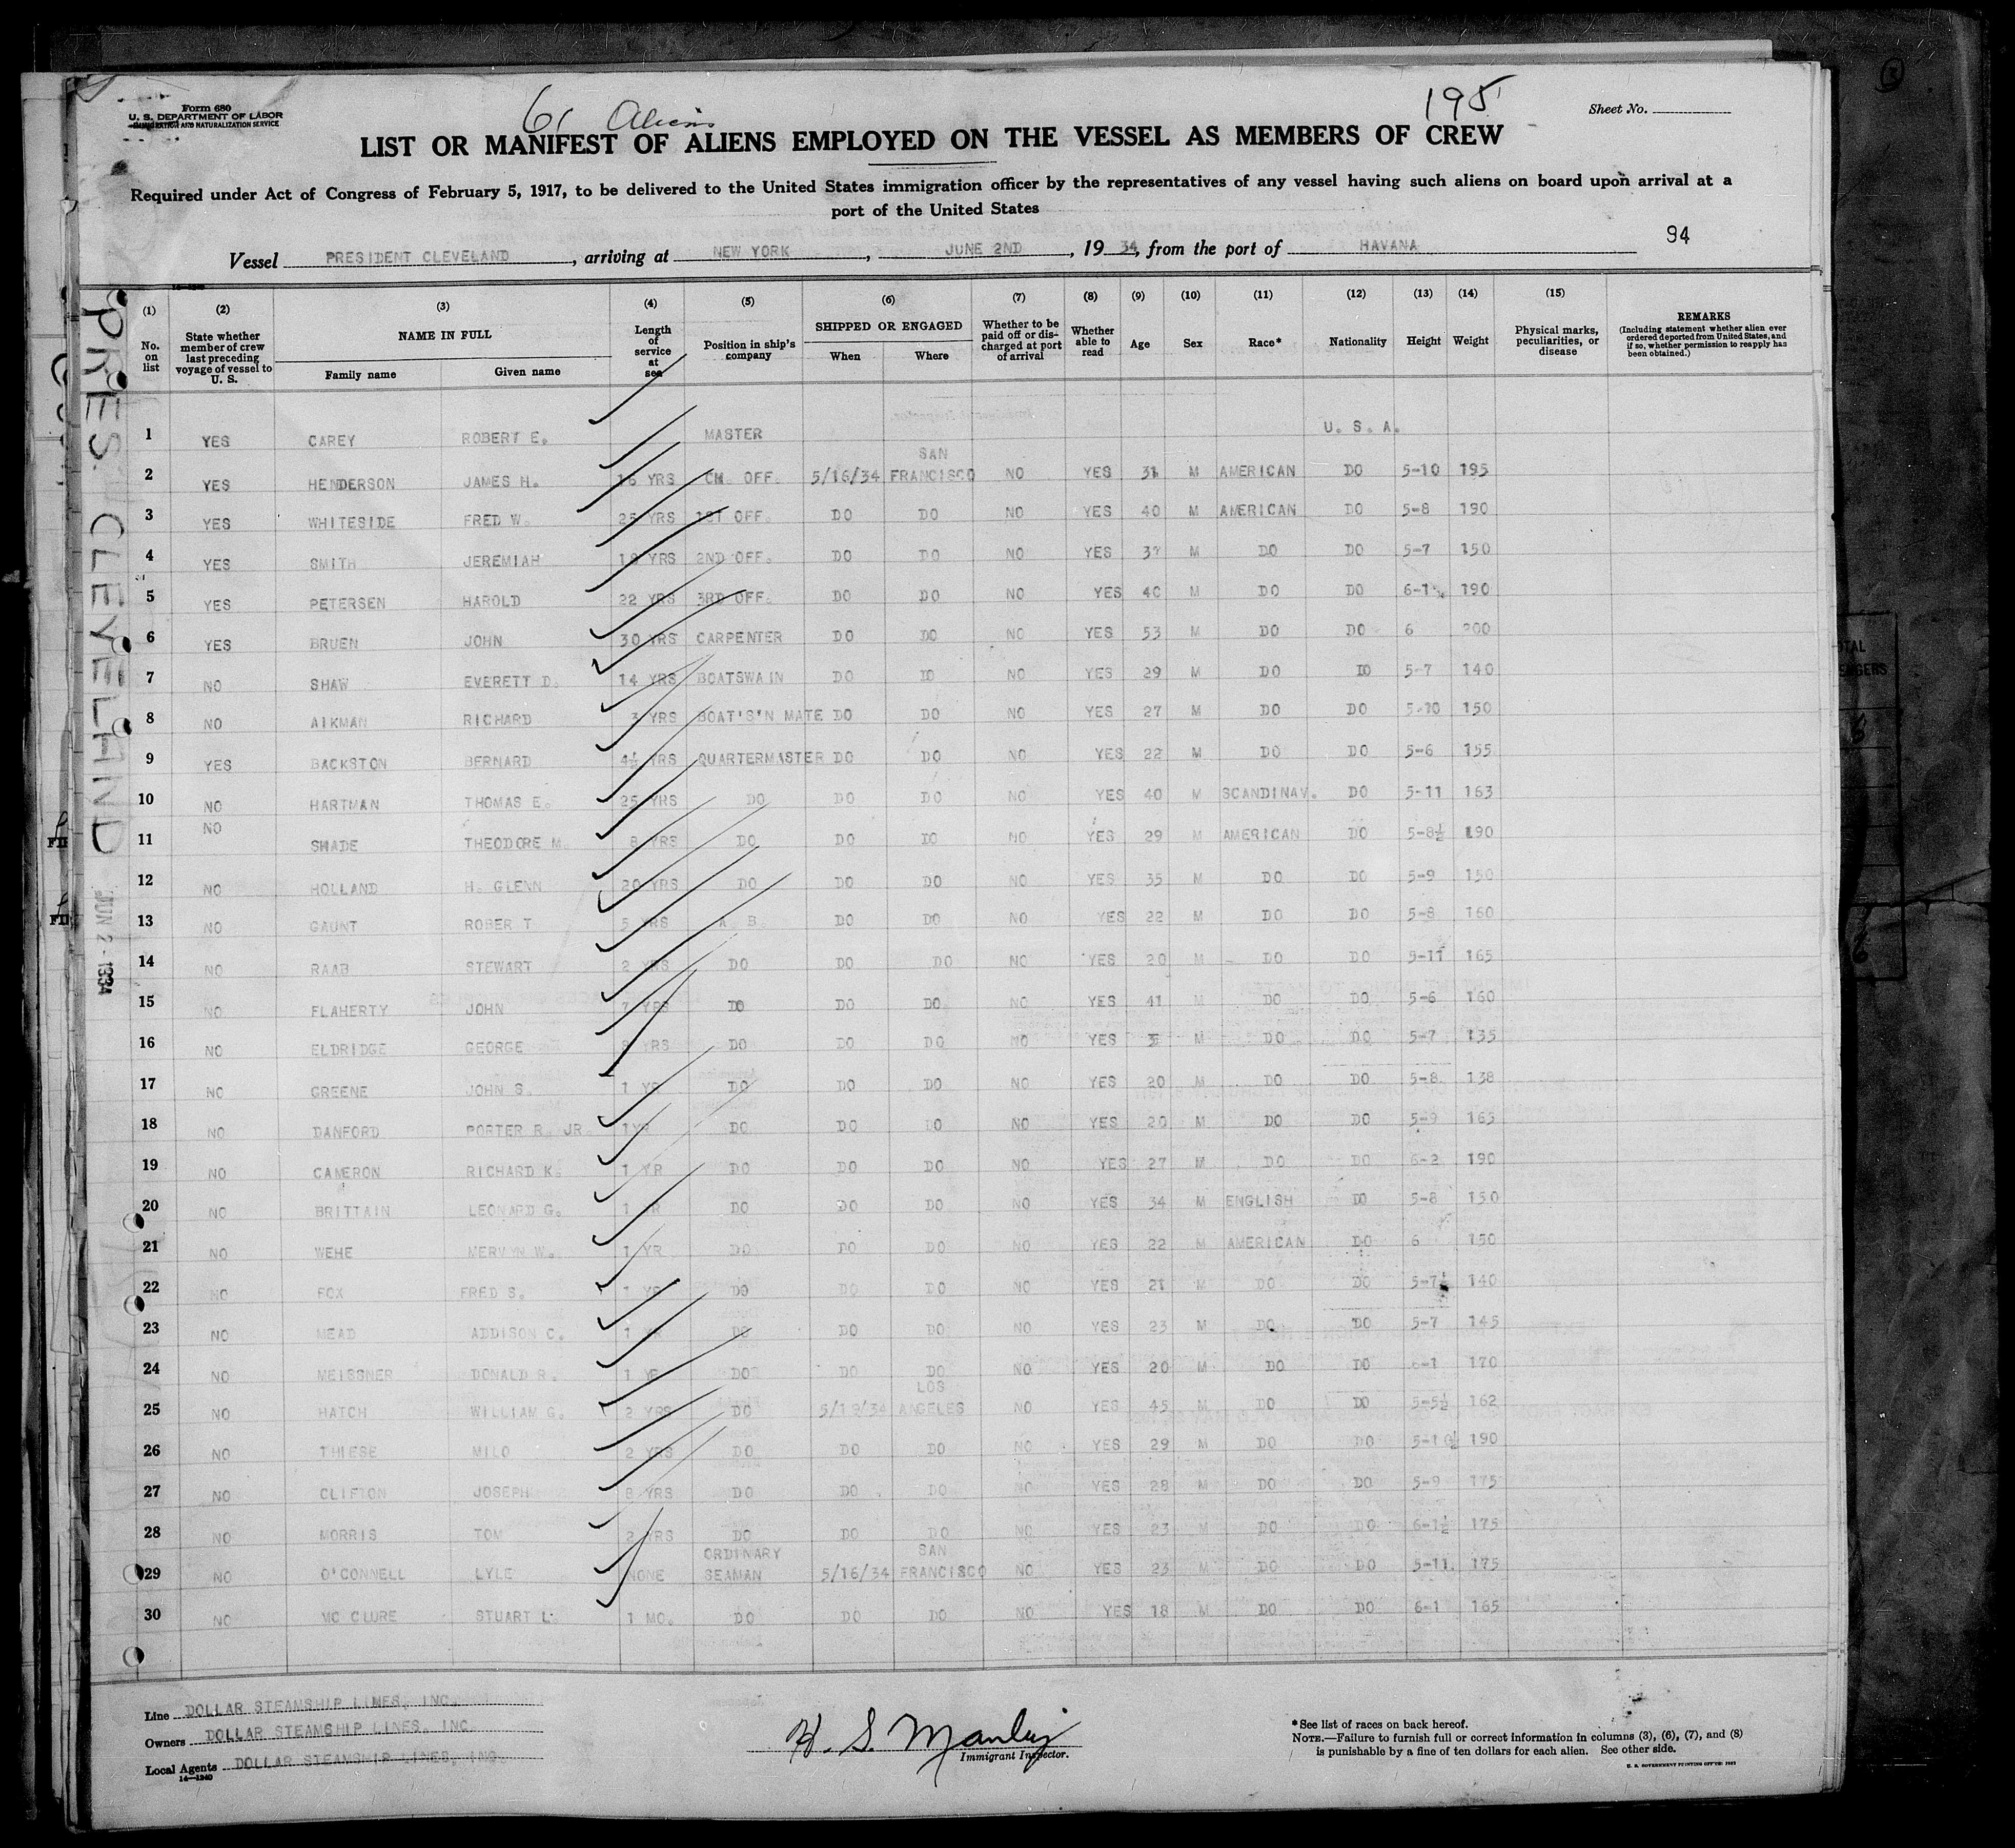 Form 680
U. S. DEPARTMENT OF LABOR
IMMIGRATION AND NATURALIZATION SERVICE
61 Aliens
195
Sheet No.
LIST OR MANIFEST OF ALIENS EMPLOYED ON THE VESSEL AS MEMBERS OF CREW
Required under Act of Congress of February 5, 1917, to be delivered to the United States immigration officer by the representatives of any vessel having such aliens on board upon arrival at a
port of the United States
94
Vessel PRESIDENT CLEVELAND, arriving at NEW YORK, JUNE 2ND, 19 34, from the port of HAVANA
(1) (2) (3) (4) (5) (6) (7) (8) (9) (10) (11) (12) (13) (14) (15)
No. on list
State whether member of crew last preceding voyage of vessel to U. S.
NAME IN FULL
Family name Given name
Length of service at sea
Position in ship's company
SHIPPED OR ENGAGED
When Where
Whether to be paid off or discharged at port of arrival
Whether able to read
Age
Sex
Race*
Nationality
Height
Weight
Physical marks, peculiarities, or disease
REMARKS
(Including statement whether alien ever ordered deported from United States, and if so, whether permission to reapply has been obtained.)
1 YES CAREY ROBERT E. MASTER U. S. A.
2 YES HENDERSON JAMES H. 16 YRS CH. OFF. 5/16/34 SAN FRANCISCO NO YES 31 M AMERICAN DO 5-10 195
3 YES WHITESIDE FRED W. 25 YRS 1ST OFF. DO DO NO YES 40 M AMERICAN DO 5-8 190
4 YES SMITH JEREMIAH 18 YRS 2ND OFF. DO DO NO YES 37 M DO DO 5-7 150
5 YES PETERSEN HAROLD 22 YRS 3RD OFF. DO DO NO YES 40 M DO DO 6-1 190
6 YES BRUEN JOHN 30 YRS CARPENTER DO DO NO YES 53 M DO DO 6 200
7 NO SHAW EVERETT D. 14 YRS BOATSWAIN DO DO NO YES 29 M DO DO 5-7 140
8 NO AIKMAN RICHARD 3 YRS BOAT'S'N MATE DO DO NO YES 27 M DO DO 5-10 150
9 YES BACKSTON BERNARD 4½ YRS QUARTERMASTER DO DO NO YES 22 M DO DO 5-6 155
10 NO HARTMAN THOMAS E. 25 YRS DO DO DO NO YES 40 M SCANDINAV. DO 5-11 163
11 NO SHADE THEODORE M. 8 YRS DO DO DO NO YES 29 M AMERICAN DO 5-8½ 190
12 NO HOLLAND H. GLENN 20 YRS DO DO DO NO YES 35 M DO DO 5-9 150
13 NO GAUNT ROBERT 5 YRS A. B. DO DO NO YES 22 M DO DO 5-8 160
14 NO RAAB STEWART 2 YRS DO DO DO NO YES 20 M DO DO 5-11 165
15 NO FLAHERTY JOHN 7 YRS DO DO DO NO YES 41 M DO DO 5-6 160
16 NO ELDRIDGE GEORGE YRS DO DO DO NO YES M DO DO 5-7 135
17 NO GREENE JOHN S. 1 YR DO DO DO NO YES 20 M DO DO 5-8 138
18 NO DANFORD PORTER R. JR. 1 YR DO DO DO NO YES 20 M DO DO 5-9 165
19 NO CAMERON RICHARD K. 1 YR DO DO DO NO YES 27 M DO DO 6-2 190
20 NO BRITTAIN LEONARD G. 1 YR DO DO DO NO YES 34 M ENGLISH DO 5-8 150
21 NO WEHE MERVYN W. 1 YR DO DO DO NO YES 22 M AMERICAN DO 6 150
22 NO FOX FRED S. 1 YR DO DO DO NO YES 21 M DO DO 5-7½ 140
23 NO MEAD ADDISON C. 1 YR DO DO DO NO YES 23 M DO DO 5-7 145
24 NO MEISSNER DONALD R. 1 YR DO DO DO NO YES 20 M DO DO 6-1 170
25 NO HATCH WILLIAM G. 2 YRS DO 5/19/34 LOS ANGELES NO YES 45 M DO DO 5-5½ 162
26 NO THIESE MILO 2 YRS DO DO DO NO YES 29 M DO DO 5-10½ 190
27 NO CLIFTON JOSEPH 8 YRS DO DO DO NO YES 28 M DO DO 5-9 175
28 NO MORRIS TOM 2 YRS DO DO DO NO YES 23 M DO DO 6-1½ 175
29 NO O'CONNELL LYLE NONE ORDINARY SEAMAN 5/16/34 SAN FRANCISCO NO YES 23 M DO DO 5-11 175
30 NO MC CLURE STUART L. 1 MO. DO DO DO NO YES 18 M DO DO 6-1 165
PRES. CLEVELAND
JUN 2 - 1934
Line DOLLAR STEAMSHIP LINES, INC.
Owners DOLLAR STEAMSHIP LINES, INC.
Local Agents DOLLAR STEAMSHIP LINES, INC.
14—1240
H. S. Manley
Immigrant Inspector.
*See list of races on back hereof.
NOTE.—Failure to furnish full or correct information in columns (3), (6), (7), and (8)
is punishable by a fine of ten dollars for each alien. See other side.
U. S. GOVERNMENT PRINTING OFFICE: 1932